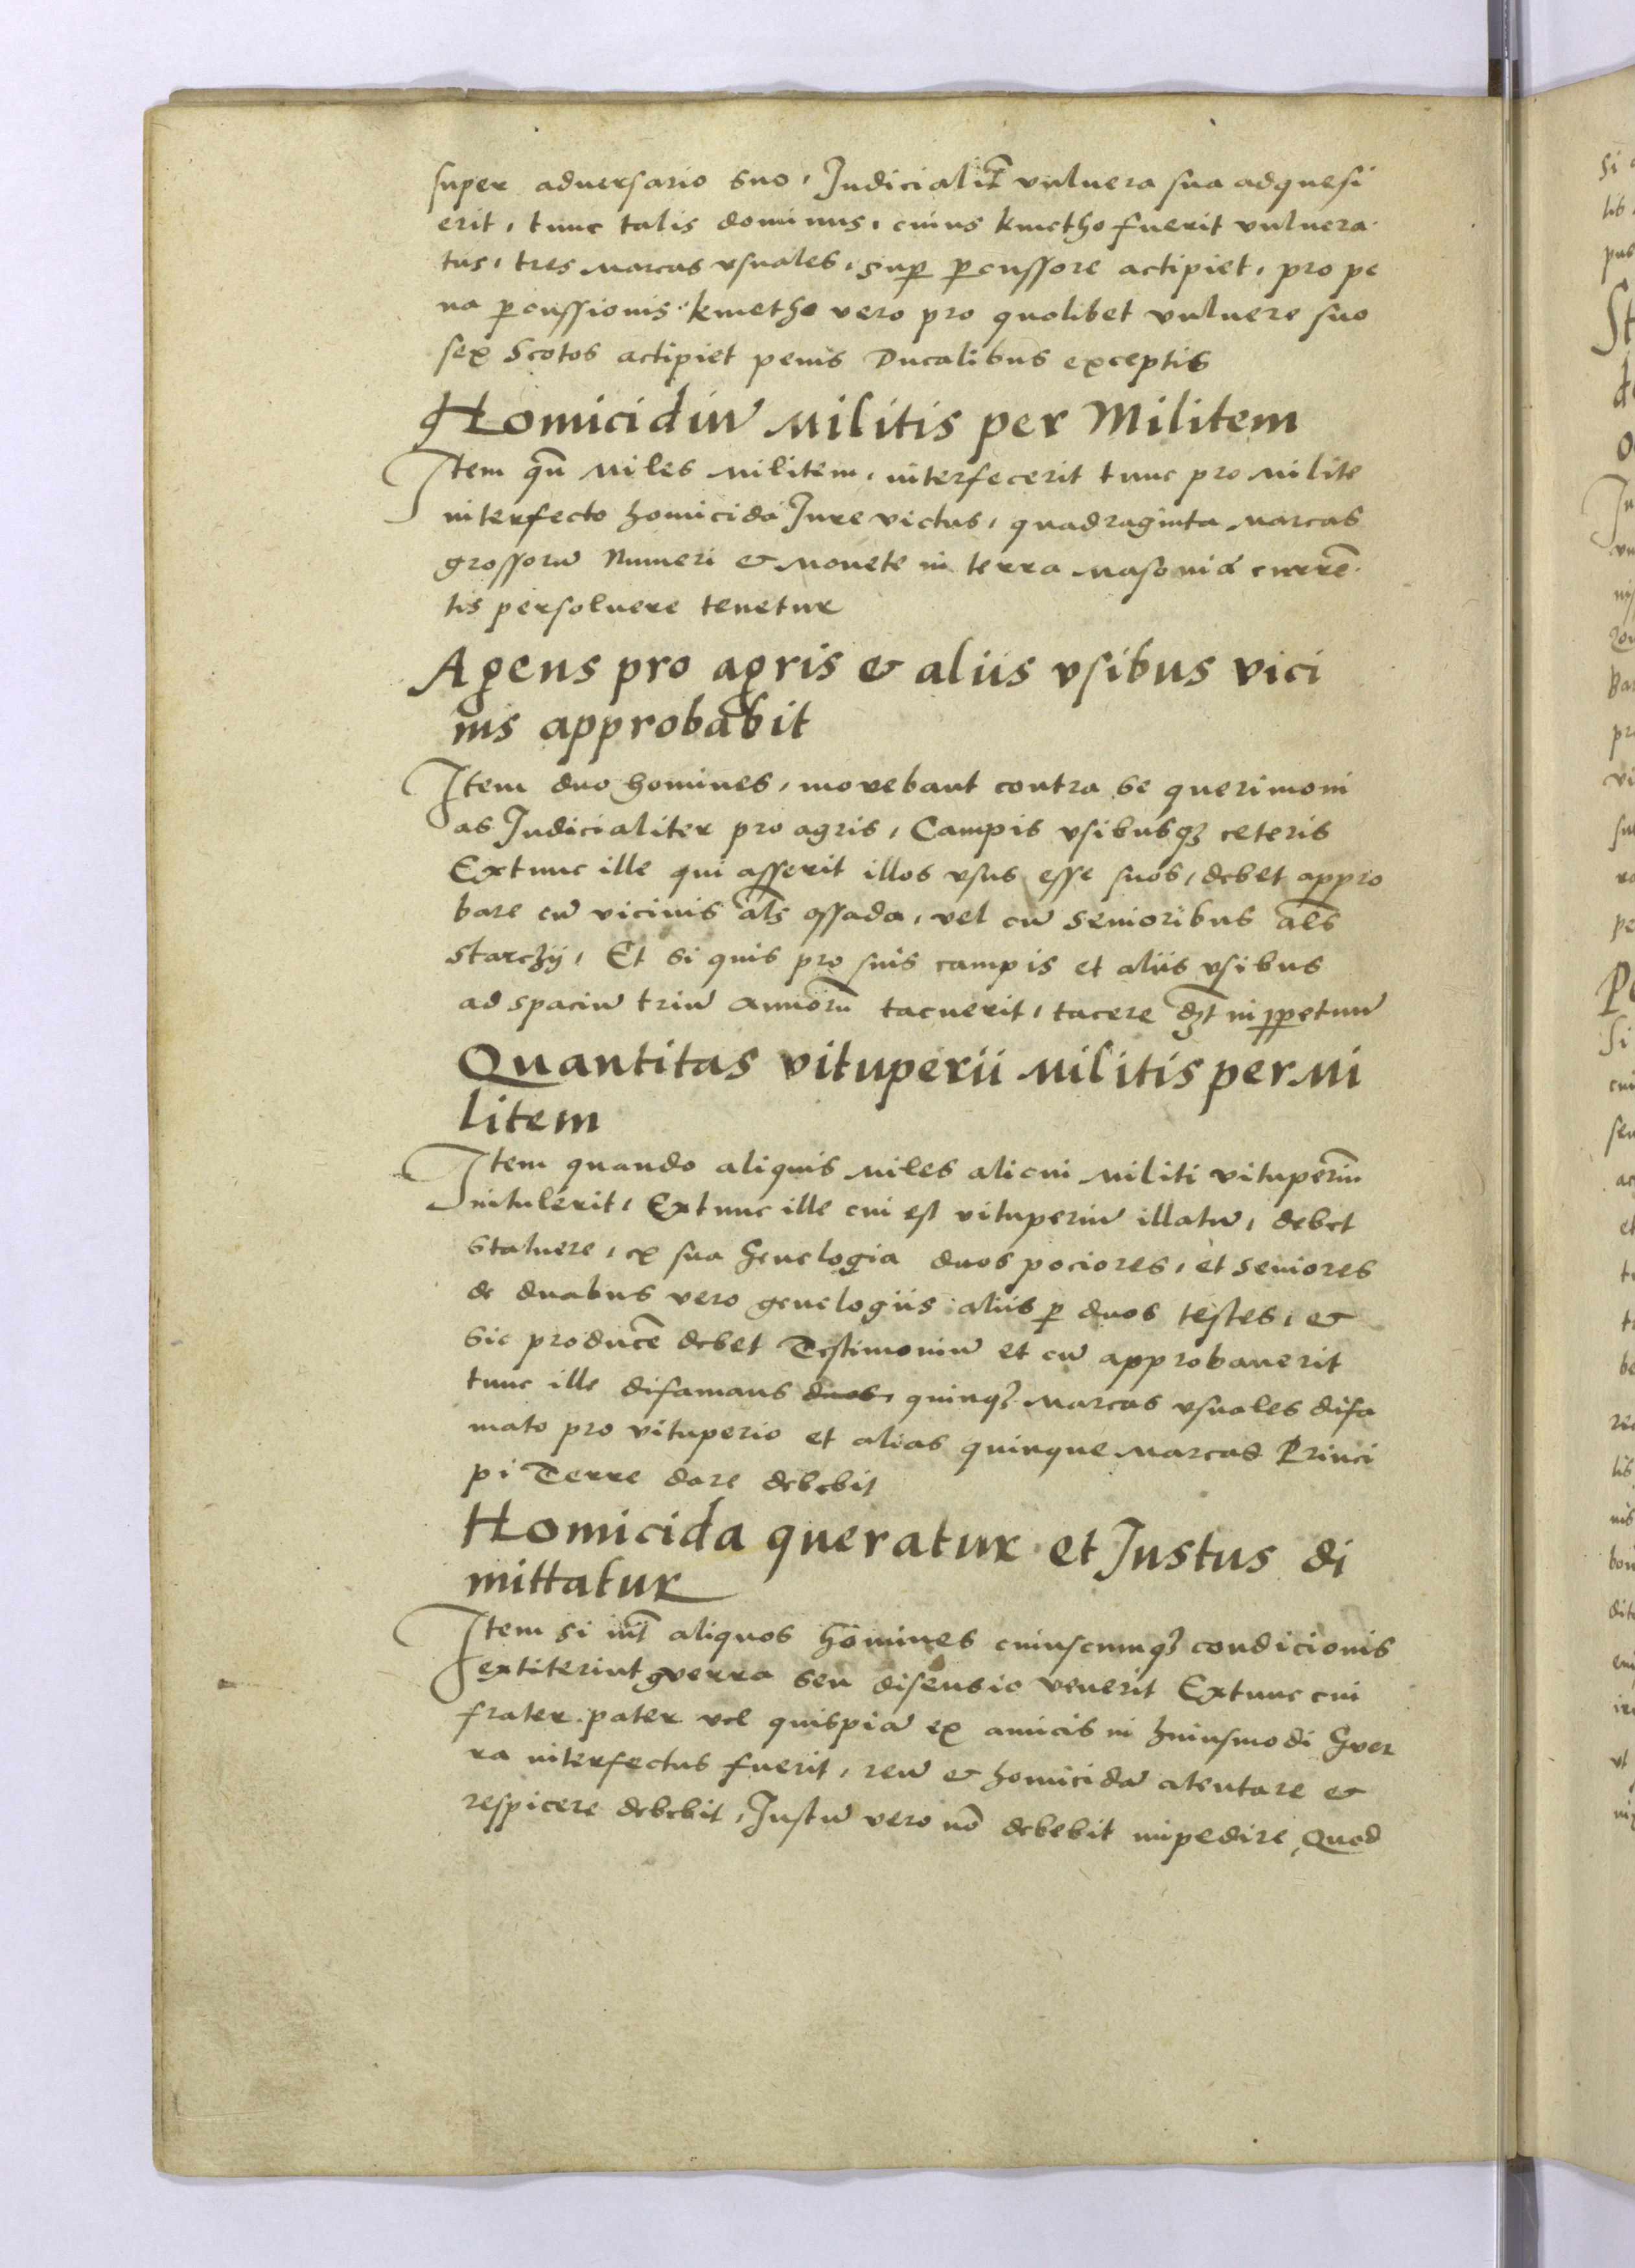 super adversario suo, Judicialit̃ vulnera sua adquesi
erit, tunc talis dominus, cuius kmetho fuerit vulnera
tus, tres marcas vsuales, sup̱ p̱cussore actipiet, pro pe
na p̱cussionis kmetho vero pro quolibet vulnere suo
sex Scotos actipiet penis Ducalibus exceptis
Homicidiũ militis per Militem
Item qñ miles militem, interfecerit tunc pro milite
interfecto homicida Jure victus, quadraginta marcas
grossorũ Numeri & monete in terra masovia currẽ
tis persoluere tenetur
Agens pro agris & aliis vsibus vici
nis approbabit
Item duo homines, movebant contra se querimoni
as Judicialiter pro agris, Campis vsibusqꝫ ceteris
Extunc ille qui asserit illos vsus esse suos, debet appro
bare cũ vicinis als̃ ossada, vel cũ senioribus als̃
starczÿ, Et si quis pro suis campis et aliis vsibus
ad spaciũ triũ annorũ tacuerit, tacere dꝫt in ꝑpetuũ
Quantitas vituperii militis per mi
litem
Item quando aliquis miles alicui militi vituperiũ
intulerit, Extunc ille cui est vituperiũ illatũ, debet
statuere, ex sua Genelogia duos pociores, et seniores
de duabus vero genelogiis aliis p̱ duos testes, &
sic producẽ debet Testimoniũ et cũ approbauerit
tunc ille difamans duos, quinqꝫ marcas vsuales difa
mato pro vituperio et alias quinque marcas Princi
pi Terre dare debebit
Homicida queratur et Justus di
mittatur
Item si int̃ aliquos homines cuiuscunqꝫ condicionis
extiterint gverra seu disensio venerit Extunc cui
frater pater vel quispiã ex amicis in huiusmodi Gver
ra interfectus fuerit, reũ & homicidã atentare &
respicere debebit, Justũ vero nõ debebit impedire Quod